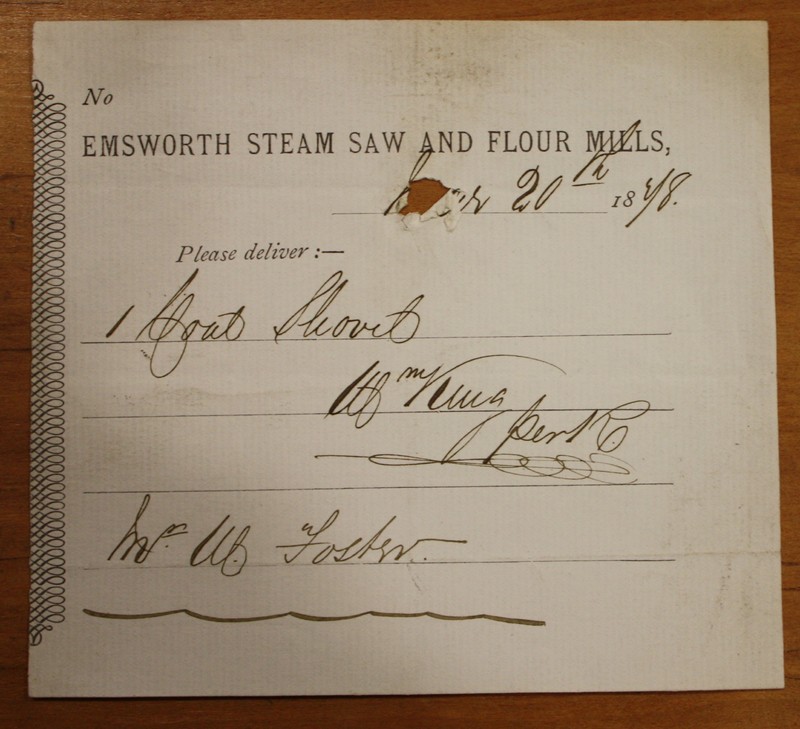 No
EMSWORTH STEAM SAW AND FLOUR MILLS,
20th 1878.
Please deliver :—
1 Coal Shovel
Wm King
per
Mr W. Foster.